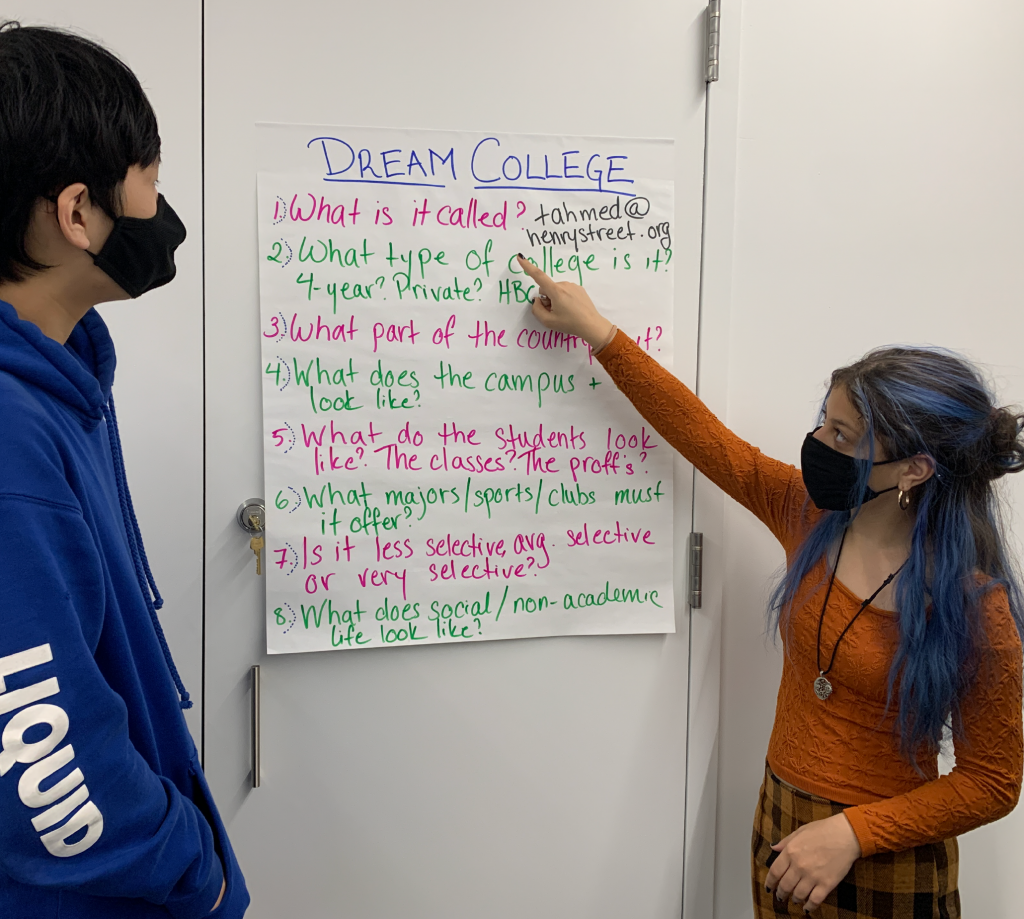 DREAM COLLEGE
1) What is it called? tahmed@
henrystreet.org
2) What type of college is it?
4-year? Private?
3) What part of the country it?
4.) What does the campus +
look like?
5.) What do the students look
like? The classes? The proff's?
6.) What majors/sports/clubs must
it offer?
7.) Is it less selective, avg. selective
or very selective?
8.) What does social/non-academic
life look like?
LIQUID